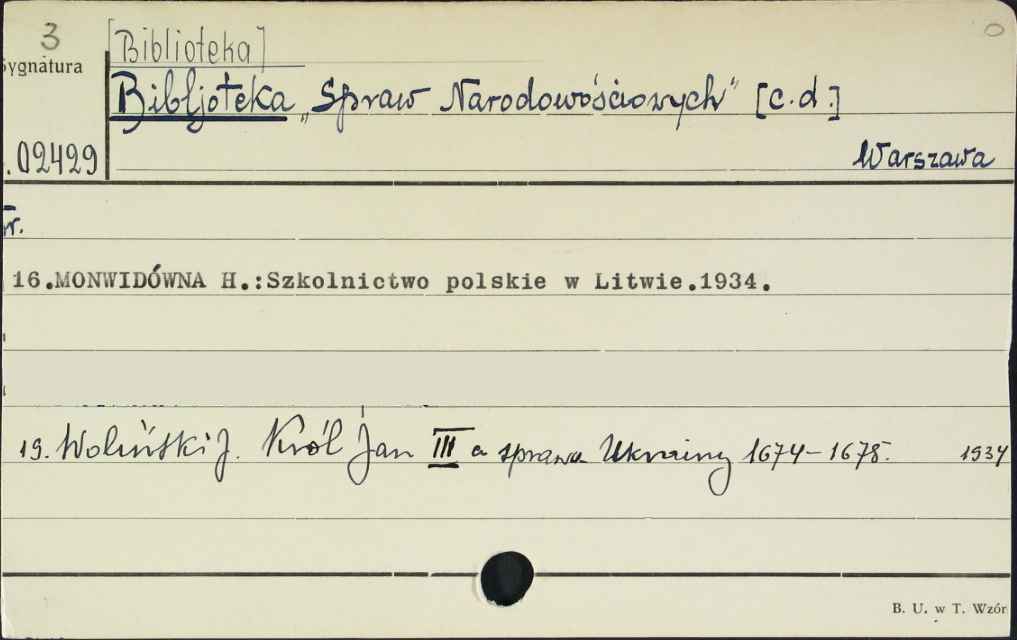 3
[Biblioteka]
Sygnatura
Bibljoteka „Spraw Narodowościowych" [c.d.]
.02429
Warszawa
nr.
16.MONWIDÓWNA H.:Szkolnictwo polskie w Litwie.1934.
19. Woliński J. Król Jan III a sprawa Ukrainy 1674-1675. 1934
B. U. w T. Wzór